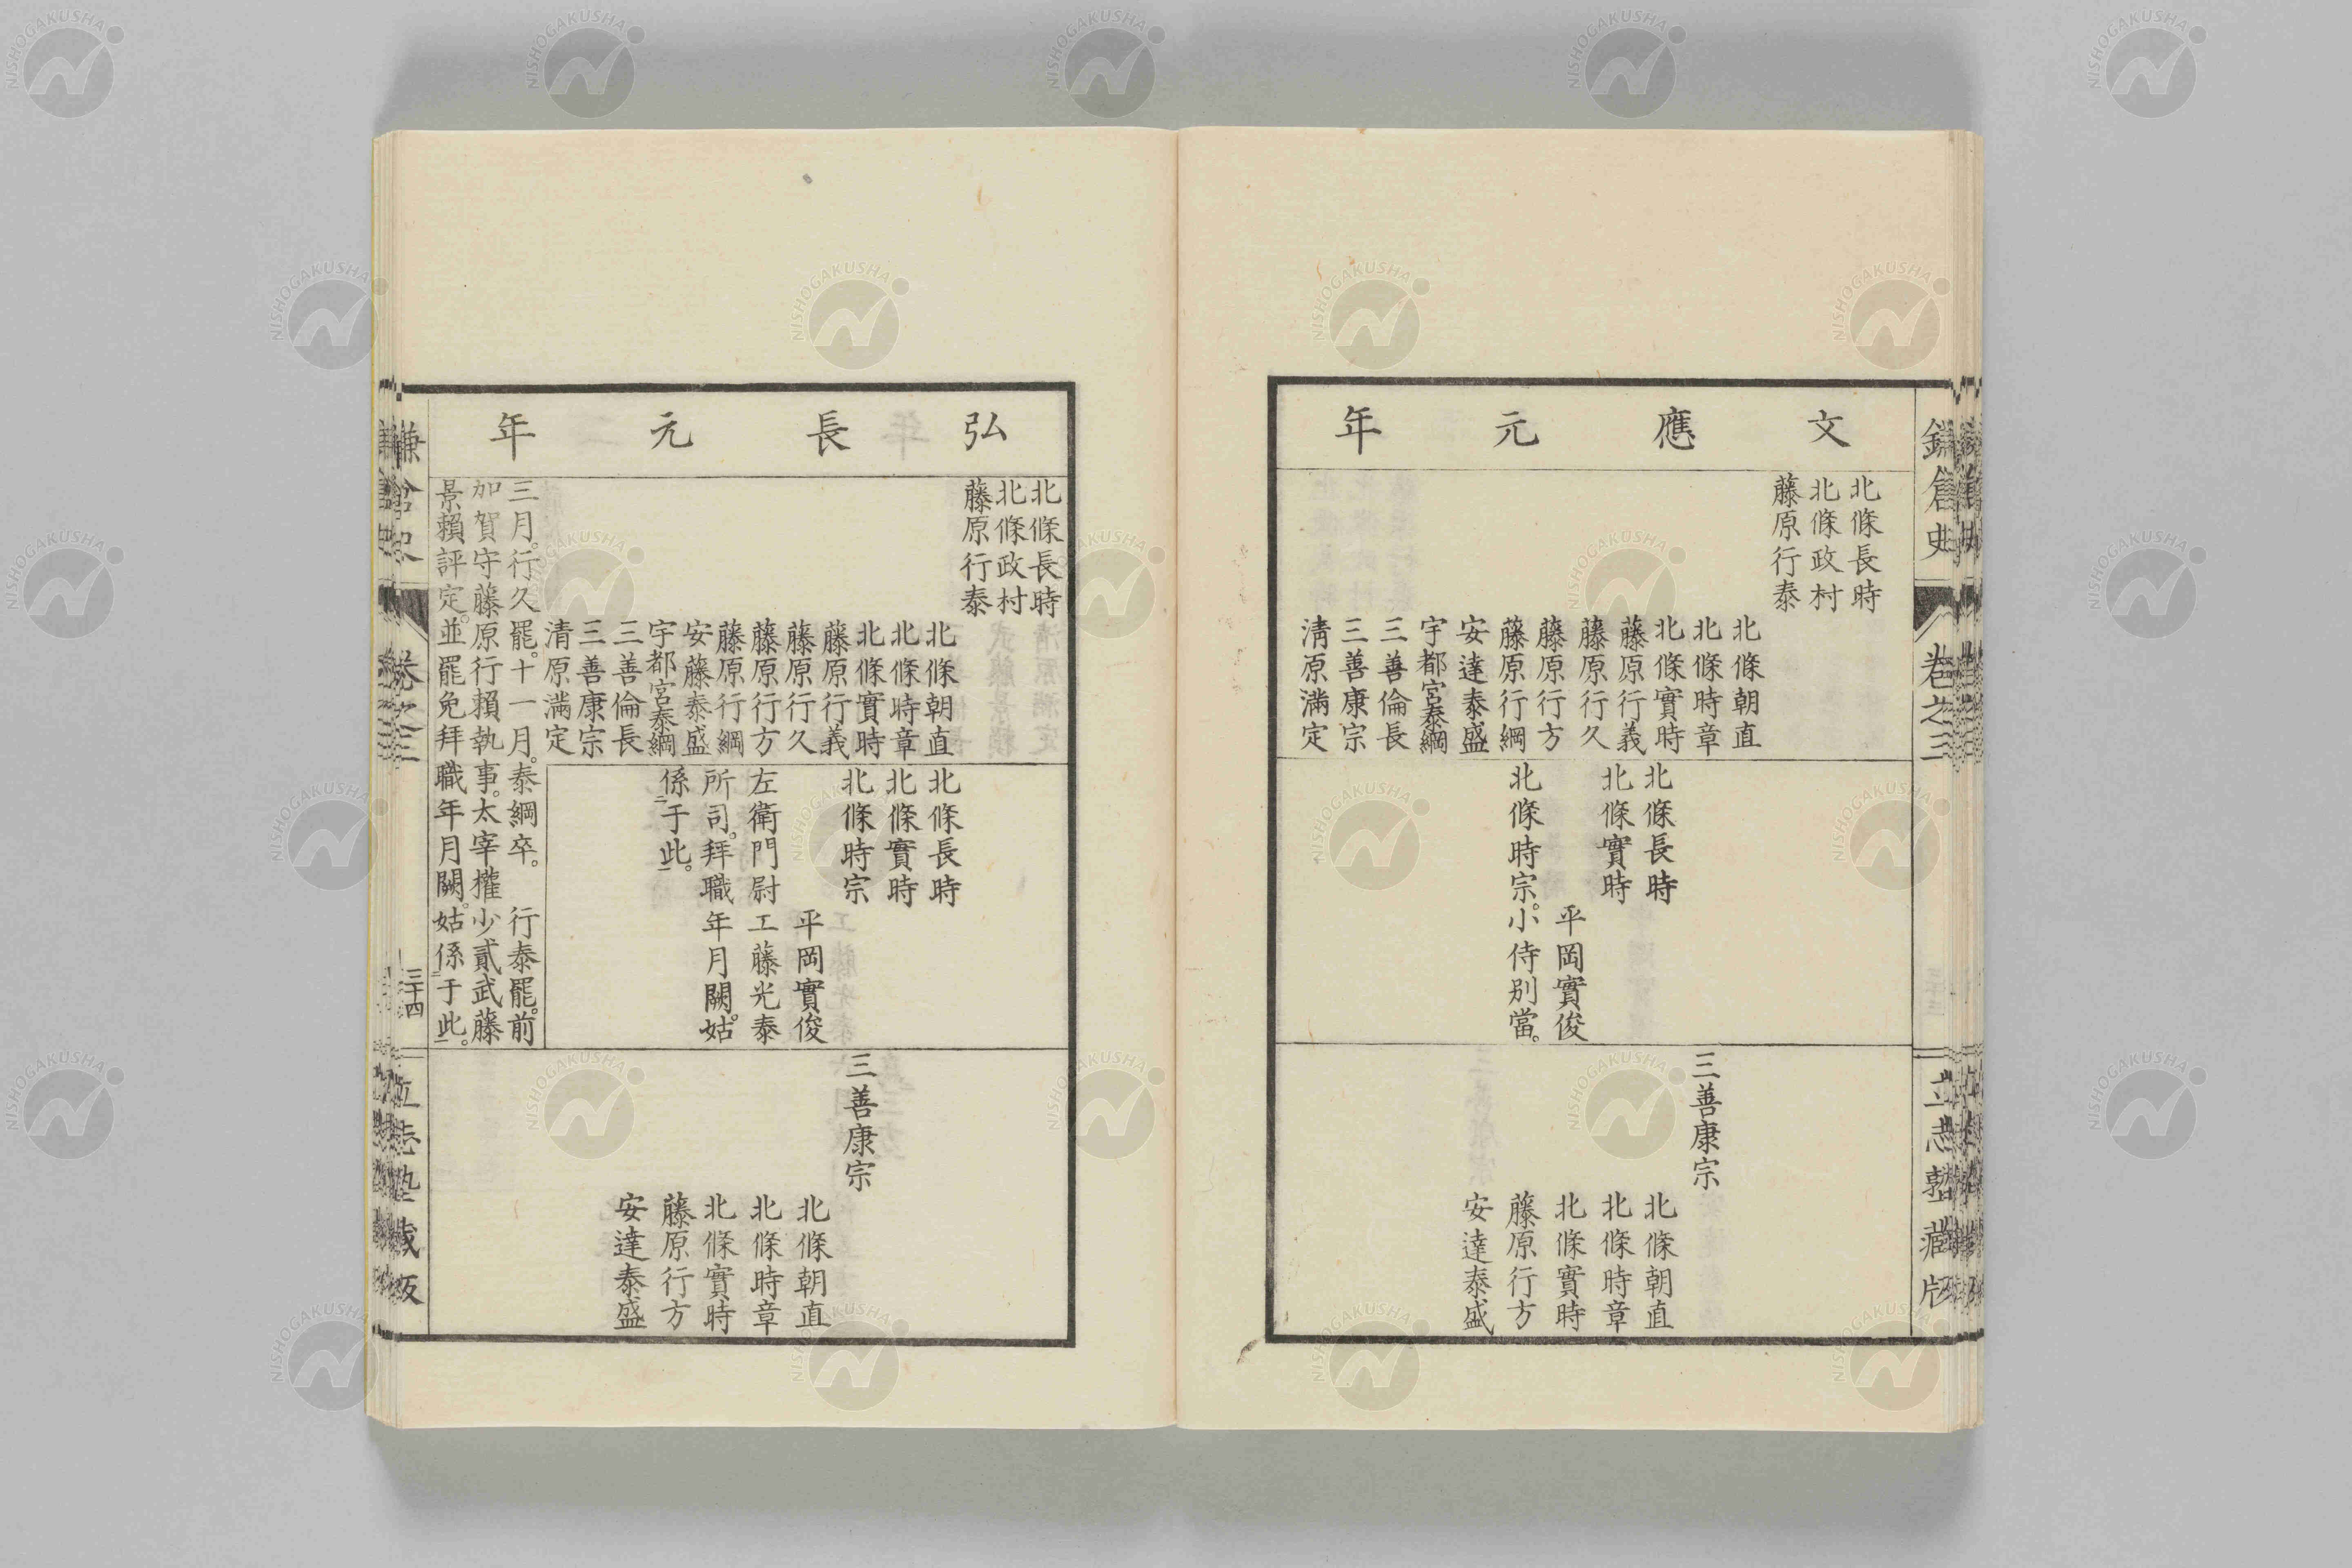 鎌倉史
卷之三
立志塾藏版
文應元年
北條長時
北條政村
藤原行泰
北條朝直
北條時章
北條實時
藤原行義
藤原行久
藤原行方
藤原行綱
安達泰盛
宇都宮泰綱
三善倫長
三善康宗
清原滿定
北條長時
北條實時
平岡實俊
北條時宗。小侍別當。
三善康宗
北條朝直
北條時章
北條實時
藤原行方
安達泰盛
弘長元年
北條長時
北條政村
藤原行泰
北條朝直
北條時章
北條實時
藤原行義
藤原行久
藤原行方
藤原行綱
安藤泰盛
宇都宮泰綱
三善倫長
三善康宗
清原滿定
三月。行久罷。十一月。泰綱卒。行泰罷。前
加賀守藤原行賴執事。太宰權少貳武藤
景賴評定。並罷免拜職年月闕。姑係二于此一。
北條長時
北條實時
北條時宗
平岡實俊
左衛門尉工藤光泰
所司。拜職年月闕。姑
係二于此一。
三善康宗
北條朝直
北條時章
北條實時
藤原行方
安達泰盛
鎌倉史
卷之三
三十四
立志塾藏版